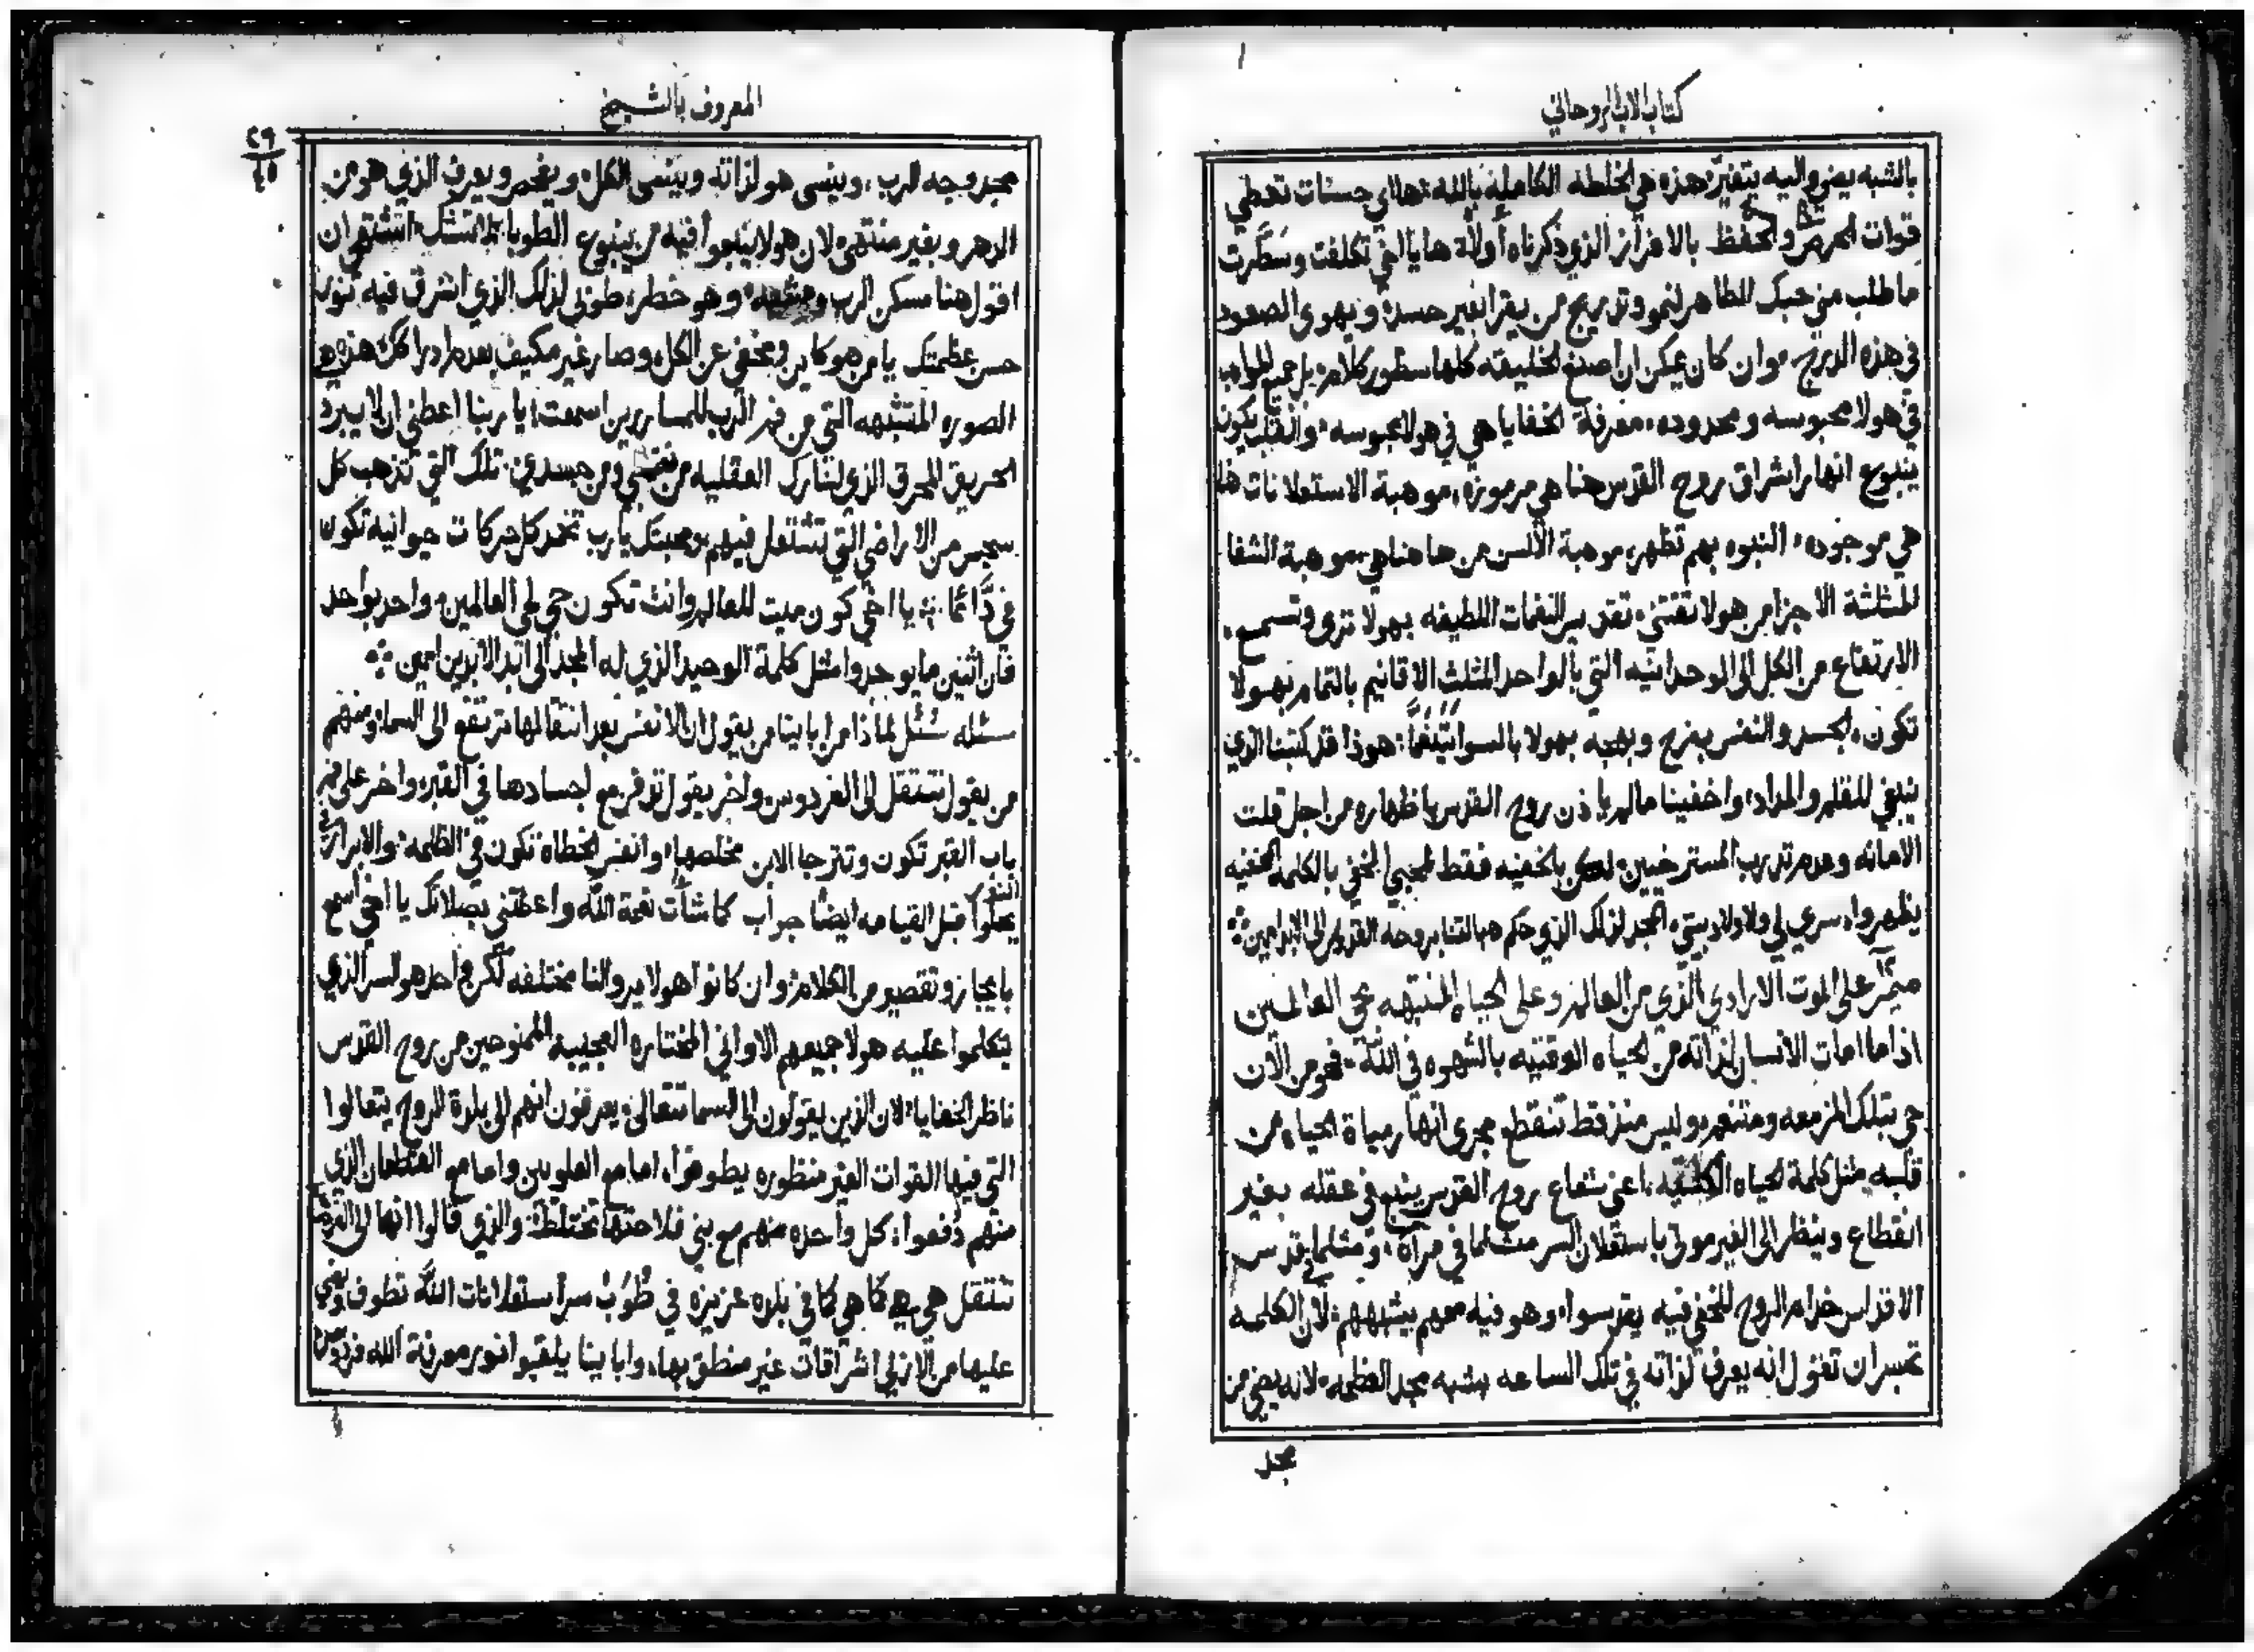 كتاب الاب الروحاني
بالشبه يضو واليه يتغير، هذه هي الخلطه الكامله بالله، هااي حسنات تعطي
قوات الحرص والحفظ بالافراز الذي ذكرناه أولاً، ها يا اخي تكلفت وسطرت
ما طلب مني حبك الطاهر لنمو وتدريج من يقرا بغير حسد، ويهوى الصعود
في هذه الدرج، وان كان يمكن ان اصنع الخليقه كلها سطور كلام، بل جميع المواهب
في هولا محبوسه ومحدوده، معرفة الخفايا هي في هولا محبوسه، والقلب يكون
ينبوع انهار اشراق روح القدس هنا هي مرموزه، موهبة الاستعلانات هنا
هي موجوده، النبوه بهم تظهر، موهبة الألسن من هاهنا هي، موهبة الشفا
المثلثة الاجزا من هولا تقتني، تقديس النغمات اللطيفه بهولا تزو وتسمع،
الارتفاع من الكل الى الوحدانيه التي بالواحد المثلث الاقانيم بالتمام بهولا
تكون، الجسد والنفس بفرح وبهجه بهولا بالسوا يتنغما، هوذا قد كتبنا الذي
ينبغي للقلم والمداد، واخفينا ما لم ياذن روح القدس باظهاره من اجل قلت
الامانه وعدم تدريب المسترخيين، لكن بالخفيه فقط لمحبي الخفي بالكلمه الخفيه
يظهروا، سري لي ولاولاد بيتي، المجد لذلك الذي حكم هبالتنا بروحه القدوس الى الابد امين
ميمر على الموت الارادي الذي من العالم وعلى الحياه المنتبهه بمحي العالمين
اذا ما امات الانسان لذاته من الحياه الوقتيه بالشهوه في الله، فهو من الآن
حي بتلك المزمعه ومتنعم، وليس منذ قط تنقطع مجرى انهار مياة الحياه من
قلبه مثل كلمة الحياه، اعني شعاع روح القدس ينبع في عقله بغير
انقطاع وينظر الى الغير مرى باستعلان السر مثلما في مرآة، ومثلما يقدس
الاقداس خدام الروح المخفي فيه يقدسوا، وهو فيه معهم بيشبههم، لأن الكلمه
تجسر ان تقول انه يعرف لذاته في تلك الساعه بشبه مجد العظمه، لانه يضي من
مجد
المعروف بالشيخ
٢٩
٤٥
مجد وجه الرب، وينسى هو لذاته وينسى الكل، ويفحص ويعرف الذي هو من
الدهر وبغير منتهى، لان هولا ينبعوا فيه من ينبوع الطوبا اشتهي ان
اقول هنا مسكن الرب وهو خطر، طوبى لذلك الذي اشرق فيه نور
حسن عظمتك يا من هو كاين ومخفي عن الكل وصار غير مكيف بعدم ادراكك هذه هي
الصوره المتشبهه التي من فم الرب للمساررين اسمعت، يا ربنا اعطني ان لا يبرد
الحريق المحرق الذي لنارك العقليه من نفسي ومن جسدي، تلك التي تذهب كل
سجس من الامراض التي تشتعل فيهم، ومحبتك يا رب تخمد كل حركات حيوانيه تكون
في دائما، يا اخي كون ميت للعالم وانت تكون حي لمحي العالمين، واحد بواحد
فان اثنين ما يوجدوا مثل كلمة الوحيد الذي له المجد الى ابد الابدين امين
سئله سُئل لماذا من ابايينا من يقول ان الانفس بعد انتقالها ترتفع الى السما، ومنهم
من يقول تنتقل الى الفردوس، واخر يقول تدفن مع اجسادها في القبر، واخر على فم
باب القبر تكون وتترجا الابن مخلصها، وانفس الخطاه تكون في الظلمه، والابرار في
النور
يحلوا قبل القيامه ايضا جواب كما شأت نعمة الله واعطتني بصلاتك يا اخي اسمع
بايجاز وتقصير من الكلام، وان كانوا هولا يروا لنا مختلفه لكن واحد هو السر الذي
يتكلموا عليه هولا جميعهم الاواني المختاره العجيبه الممنوحين من روح القدس
ناظر الخفايا، لان الذين يقولون الى السما تتعالى، يعرفون انهم الى بلدة الروح يتعالوا
التي فيها القوات الغير منظوره يطوفوا، اما مع العلويين واما مع القطعان الذي
منهم دُفعوا، كل واحده منهم مع بني فلاحتها تختلط، والذي قالوا انها الى الفردوس
تنتقل هي هي كما هي كما في بلده عزيزه في طُوب سر استعلانات الله تطوف
عليها من الازلي اشراقات غير منطق بها، وابايينا يلقبوا نور معرفة الله فردوس